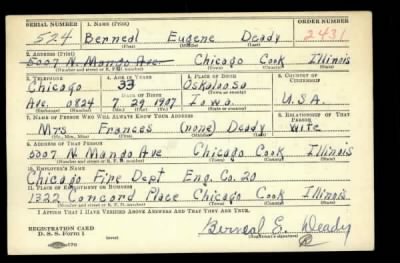 SERIAL NUMBER 1. NAME (Print) ORDER NUMBER
524 Berneal Eugene Deady 2431
(First) (Middle) (Last)
2. ADDRESS (Print)
5007 N. Mango Ave. Chicago Cook Illinois
(Number and street or R. F. D. number) (Town) (County) (State)
3. TELEPHONE 4. AGE IN YEARS 5. PLACE OF BIRTH 6. COUNTRY OF CITIZENSHIP
Chicago 33 Oskaloosa
DATE OF BIRTH
Ave. 0824 7 29 1907 Iowa U.S.A.
(Mo.) (Day) (Yr.)
7. NAME OF PERSON WHO WILL ALWAYS KNOW YOUR ADDRESS 8. RELATIONSHIP OF THAT PERSON
Mrs Frances (none) Deady Wife
(Mr., Mrs., Miss) (First) (Middle) (Last)
9. ADDRESS OF THAT PERSON
5007 N Mango Ave Chicago Cook Illinois
(Number and street or R. F. D. number) (Town) (County) (State)
10. EMPLOYER'S NAME
Chicago Fire Dept Eng. Co. 20
11. PLACE OF EMPLOYMENT OR BUSINESS
1322 Concord Place Chicago Cook Illinois
(Number and street or R. F. D. number) (Town) (County) (State)
I AFFIRM THAT I HAVE VERIFIED ABOVE ANSWERS AND THAT THEY ARE TRUE.
REGISTRATION CARD
D. S. S. Form 1 Berneal E. Deady
(Registrant's signature)